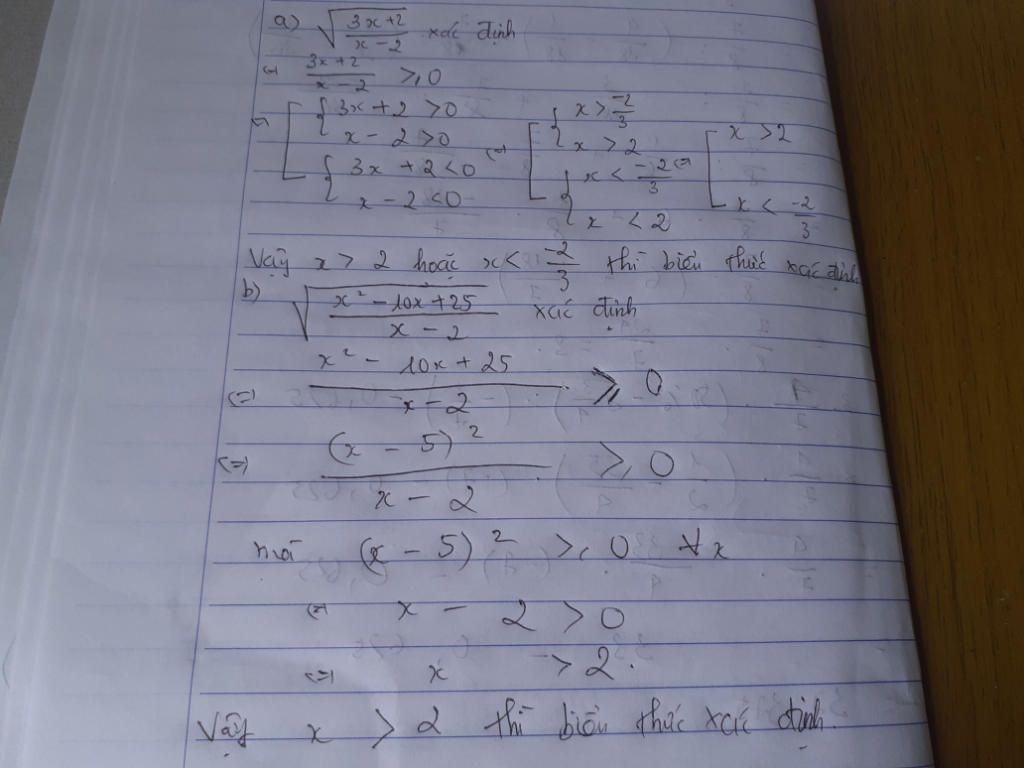 a) √((3x+2)/(x-2)) xác định
⇔ (3x+2)/(x-2) ≥ 0
⇔ [ { 3x+2 > 0 ; x-2 > 0 } ; { 3x+2 < 0 ; x-2 < 0 } ⇔ [ { x > -2/3 ; x > 2 } ; { x < -2/3 ; x < 2 } ⇔ [ x > 2 ; x < -2/3
Vậy x > 2 hoặc x < -2/3 thì biểu thức xác định
b) √((x²-10x+25)/(x-2)) xác định
⇔ (x²-10x+25)/(x-2) ≥ 0
⇔ (x-5)²/(x-2) ≥ 0
mà (x-5)² ≥ 0 ∀x
⇔ x - 2 > 0
⇔ x > 2.
Vậy x > 2 thì biểu thức xác định.